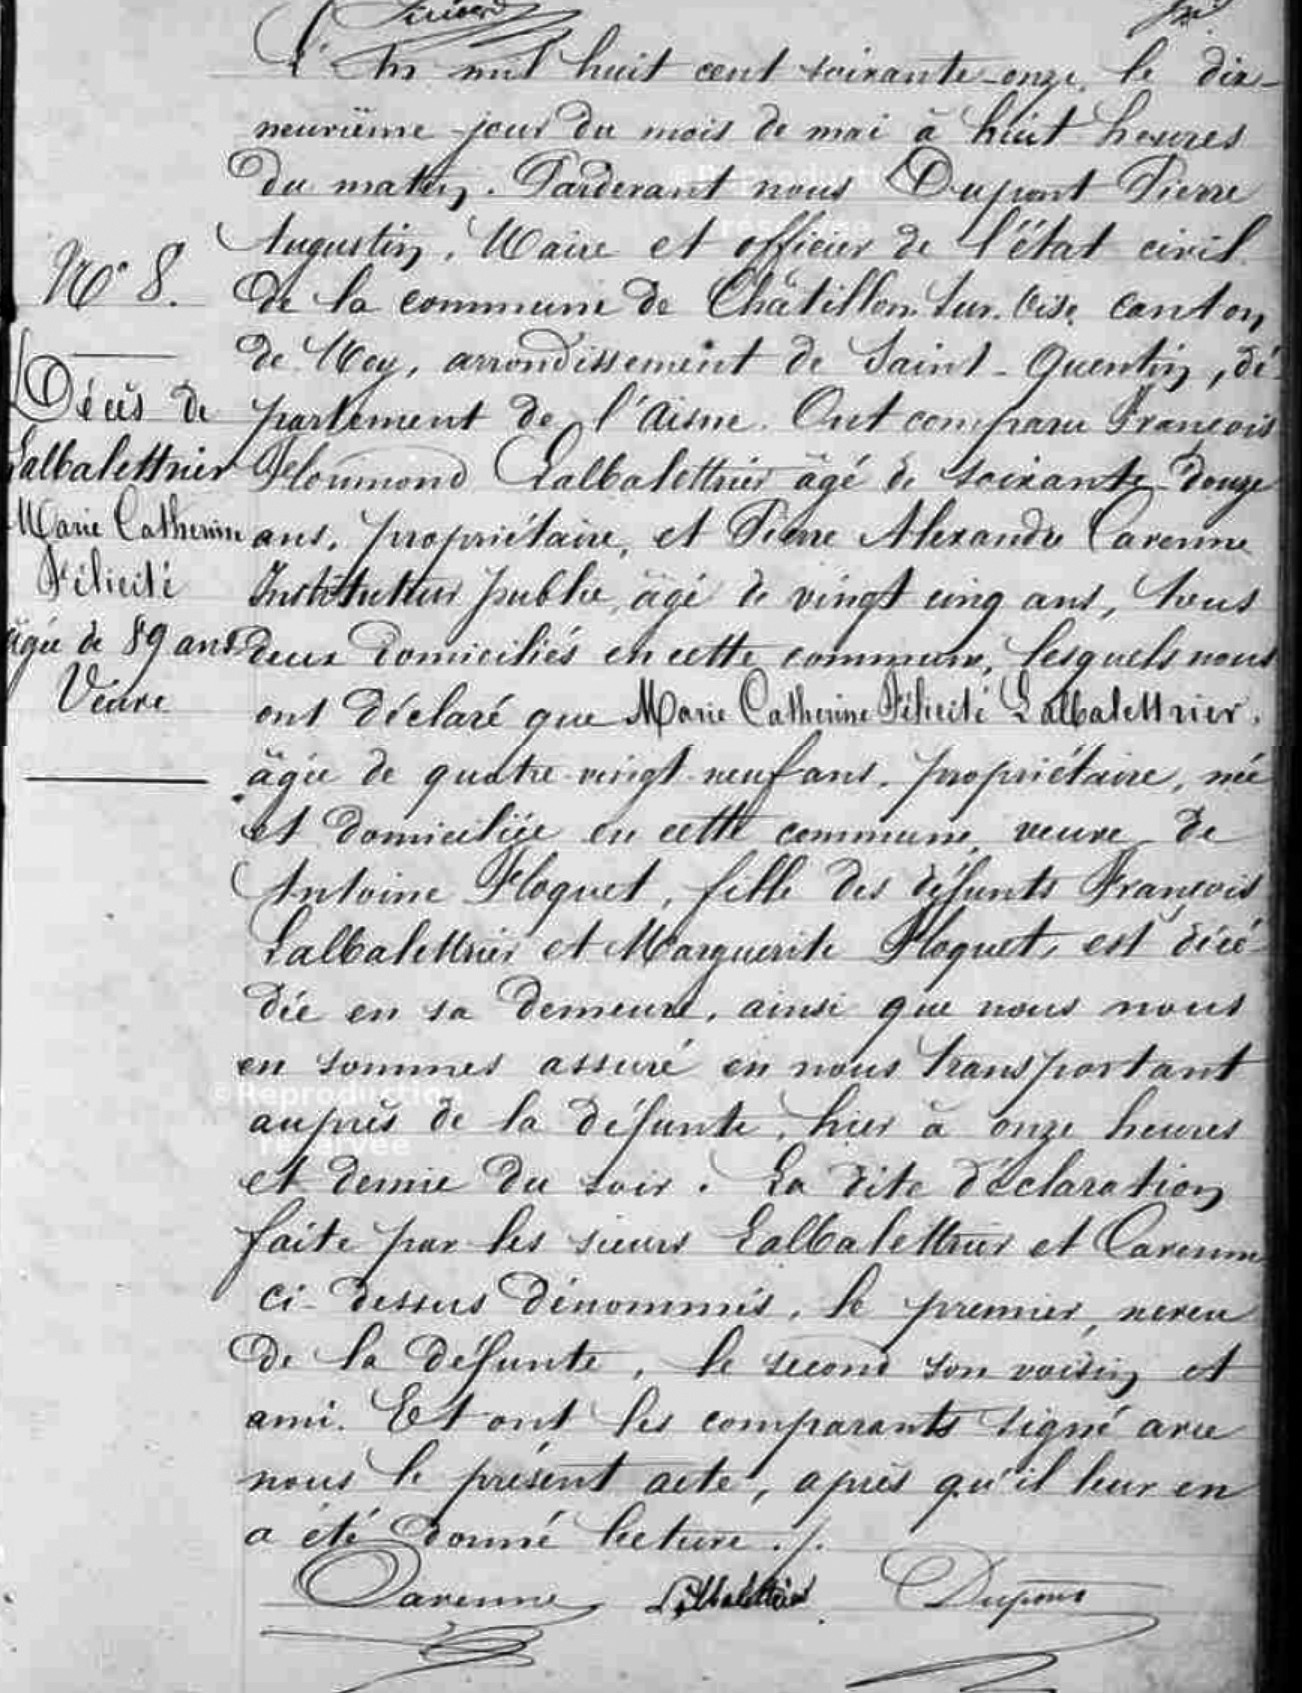 L'An mil huit cent soixante-onze, le dix-
neuvième jour du mois de mai à huit heures
du matin. Pardevant nous Dupont Pierre
Augustin, Maire et officier de l'état civil
de la commune de Châtillon-sur-Oise, canton
de Moy, arrondissement de Saint-Quentin, dé-
partement de l'Aisne. Ont comparu François
Floumond Lalbalettrier âgé de soixante-douze
ans, propriétaire, et Pierre Alexandre Carenne
Instituteur public, âgé de vingt cinq ans, tous
deux domiciliés en cette commune, lesquels nous
ont déclaré que Marie Catherine Félicité Lalbalettrier,
âgée de quatre-vingt-neuf ans, propriétaire, née
et domiciliée en cette commune, veuve de
Antoine Floquet, fille des défunts François
Lalbalettrier et Marguerite Floquet, est décé-
dée en sa demeure, ainsi que nous nous
en sommes assuré en nous transportant
auprès de la défunte, hier à onze heures
et demie du soir. La dite déclaration
faite par les sieurs Lalbalettrier et Carenne
ci-dessus dénommés, le premier, neveu
de la défunte, le second son voisin et
ami. Et ont les comparants signé avec
nous le présent acte, après qu'il leur en
a été donné lecture ./.
Carenne Lalbalettrier Dupont
N° 8.
Décès de
Lalbalettrier
Marie Catherine
Félicité
âgée de 89 ans
Veuve
©Reproduction
réservée
©Reproduction
réservée